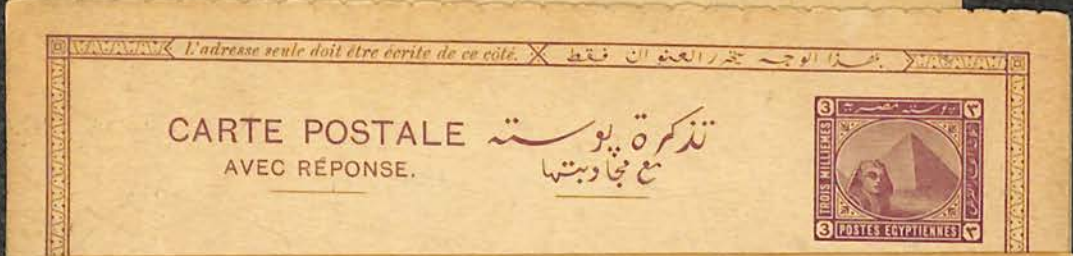 L'adresse seule doit être écrite de ce côté. بهذا الوجه يحرر العنوان فقط
CARTE POSTALE تذكرة پوسته
AVEC RÉPONSE. مع مجاوبتها
3 پوسته مصريه ٣
TROIS MILLIEMES
3 POSTES EGYPTIENNES ٣